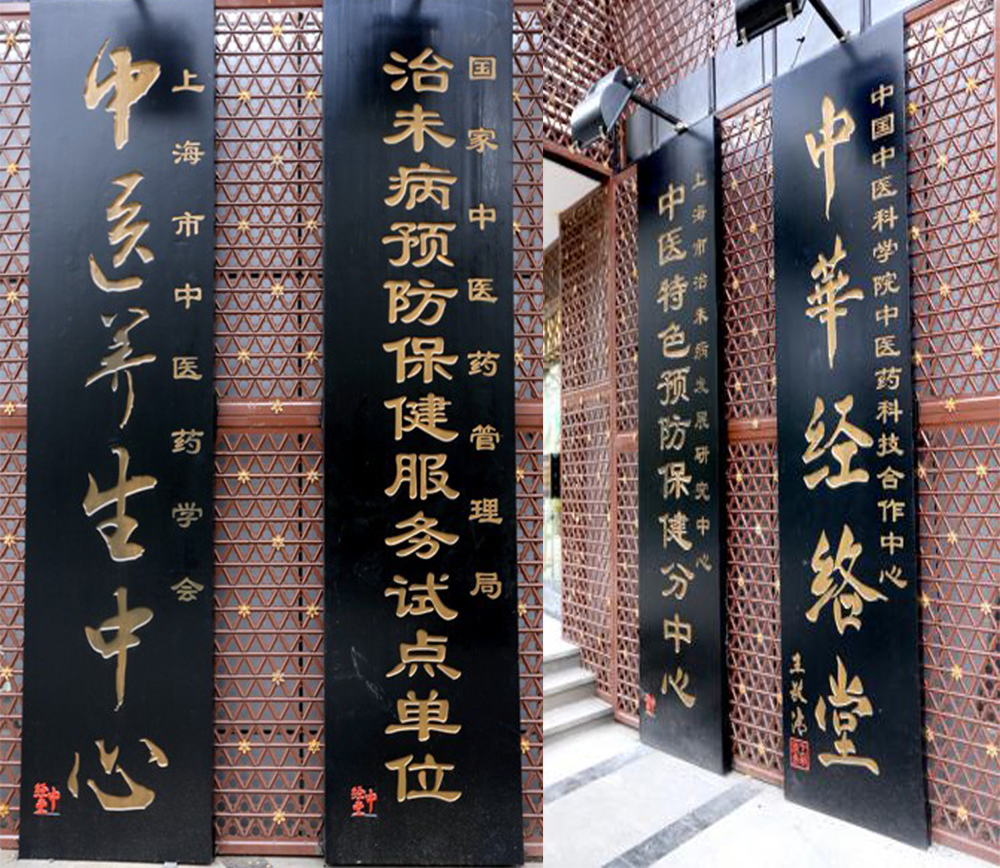 上海市中医药学会
中医养生中心
国家中医药管理局
治未病预防保健服务试点单位
上海市治未病发展研究中心
中医特色预防保健分中心
中国中医科学院中医药科技合作中心
中華经络堂